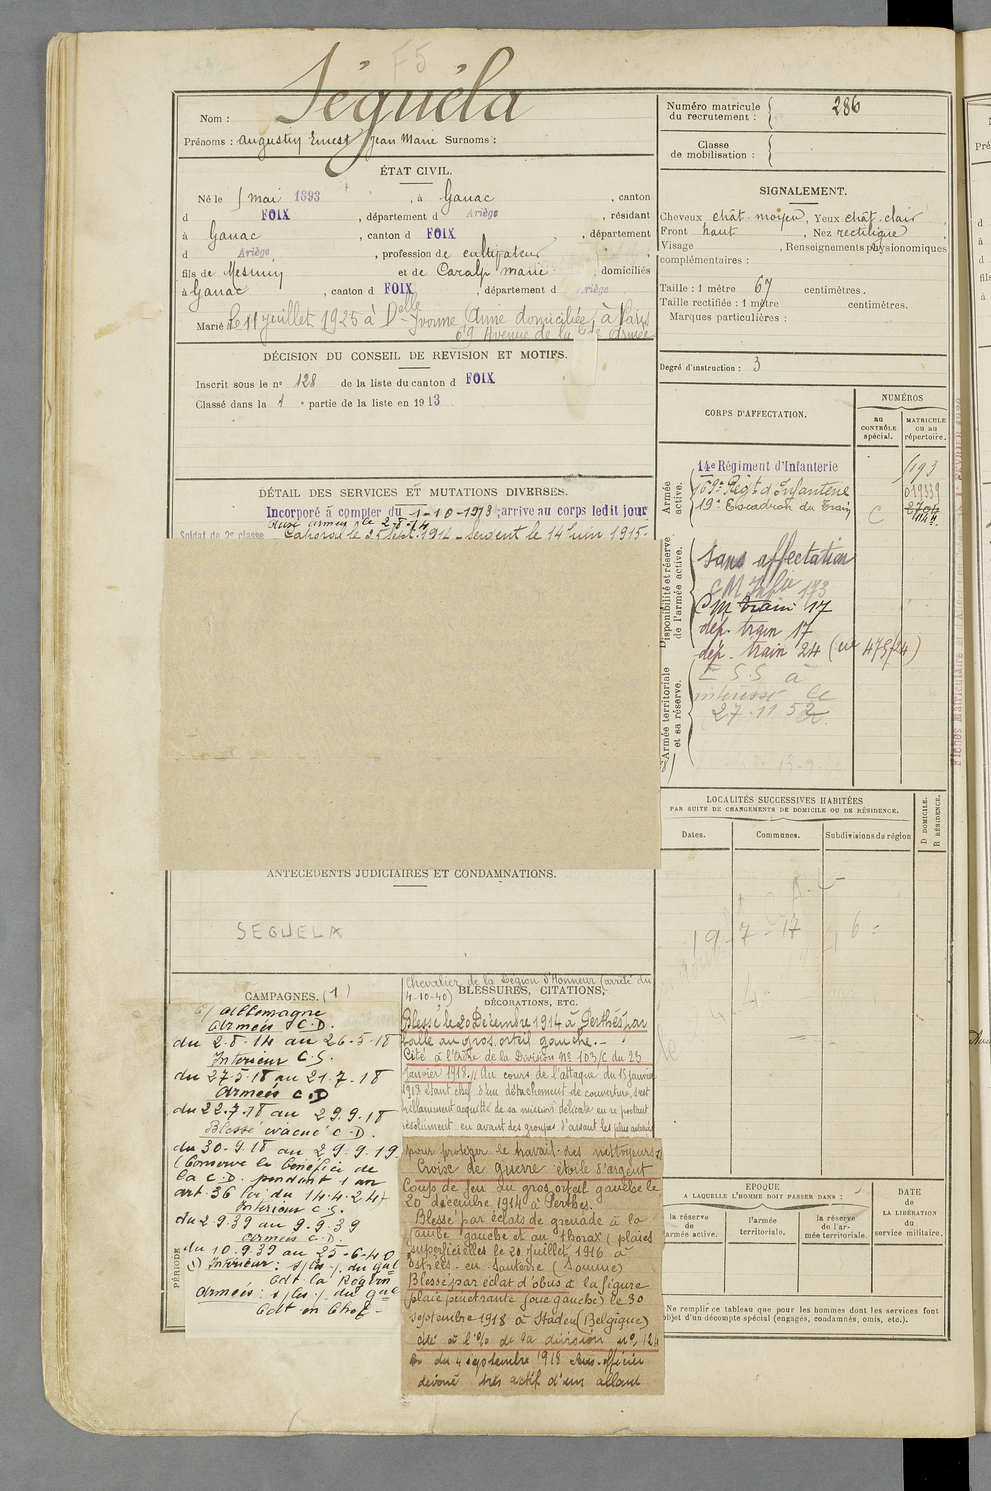 F5
Séguéla
Nom :
Prénoms : Augustin Ernest Jean Marie Surnoms :
ÉTAT CIVIL.
Né le 1 mai 1893, à Ganac, canton
d FOIX, département d Ariège, résidant
à Ganac, canton d FOIX, département
d Ariège, profession de cultivateur
fils de Mesmin et de Caralp Marie, domiciliés
à Ganac, canton d FOIX, département d Ariège
Marié à le 11 juillet 1925 à Delle Yvonne Anne domiciliée à Paris
69 Avenue de la Gde Armée
DÉCISION DU CONSEIL DE REVISION ET MOTIFS.
Inscrit sous le no 128 de la liste du canton d FOIX
Classé dans la 1 e partie de la liste en 1913
DÉTAIL DES SERVICES ET MUTATIONS DIVERSES.
Incorporé à compter du 1-10-1913; arrivé au corps ledit jour
aux armées le 2-8-14
Soldat de 2e classe Caporal le 25 sept. 1914 - Sergent le 14 juin 1915 -
ANTÉCÉDENTS JUDICIAIRES ET CONDAMNATIONS.
SEGUELA
CAMPAGNES. (1)
c/ Allemagne
Armées C.D.
du 2-8-14 au 26-5-18
Intérieur C.S.
du 27-5-18 au 21-7-18
Armées C.D
du 22.7.18 au 29.9.18
Blessé évacué C.D.
du 30-9.18 au 29.9.19
(Conserve le bénéfice de
la C.D. pendant 1 an
art. 36 loi du 14.4.24)
Intérieur C.S.
du 2.9.39 au 9.9.39
Armées C.D.
du 10.9.39 au 25-6-40
PÉRIODE
(1) Intérieur : s/les/. du Gal
Cdt la Région
Armées : s/les/. du Gal
Cdt en Chef -
Chevalier de la Légion d'Honneur (arrêté du
4-10-40)
BLESSURES, CITATIONS,
DÉCORATIONS, ETC.
Blessé le 20 Décembre 1914 à Perthes par
balle au gros orteil gauche. -
Cité à l'Ordre de la Division No 103/C du 23
Janvier 1918 // Au cours de l'attaque du 15 janvier
1918 étant chef d'un détachement de couverture, s'est
brillamment acquitté de sa mission délicate en se portant
résolument en avant des groupes d'assaut les plus avancés
pour protéger le travail des nettoyeurs
Croix de guerre étoile d'argent
Coup de feu du gros orteil gauche le
20 décembre 1914 à Perthes.
Blessé par éclats de grenade à la
jambe gauche et au thorax (plaies
superficielles le 20 Juillet 1916 à
Estrées-en Santerre (Somme)
Blessé par éclat d'obus à la figure
(plaie pénétrante joue gauche) le 30
septembre 1918 à Staden (Belgique)
cité à l'O/ de sa division no 124
du 4 septembre 1918 Sous-officier
dévoué très actif d'un allant
Numéro matricule
du recrutement : 286
Classe
de mobilisation :
SIGNALEMENT.
Cheveux chât. moyen, Yeux chât. clair,
Front haut, Nez rectiligne
Visage, Renseignements physionomiques
complémentaires :
Taille : 1 mètre 67 centimètres.
Taille rectifiée : 1 mètre centimètres.
Marques particulières :
Degré d'instruction : 3
CORPS D'AFFECTATION.
NUMÉROS
au
CONTRÔLE
spécial.
MATRICULE
OU AU
répertoire.
Armée
active.
14e Régiment d'Infanterie 1193
109e Régt d'Infanterie 019339
19e Escadron du Train C 2706
1144
Disponibilité et réserve
de l'armée active.
Sans affectation
CM Infie 173
CM train 17
dép. train 17
dép. train 24 (
Armée territoriale
et sa réserve.
E S.S à
intéressé le
27.11.52
LOCALITÉS SUCCESSIVES HABITÉES
PAR SUITE DE CHANGEMENTS DE DOMICILE OU DE RÉSIDENCE.
Dates.
Communes.
Subdivisions de région
D DOMICILE.
R RÉSIDENCE.
19-7-17
EPOQUE
A LAQUELLE L'HOMME DOIT PASSER DANS :
la réserve
de
l'armée active.
l'armée
territoriale.
la réserve
de l'ar-
mée territoriale.
DATE
de
LA LIBÉRATION
du
service militaire.
Ne remplir ce tableau que pour les hommes dont les services font
objet d'un décompte spécial (engagés, condamnés, omis, etc.).